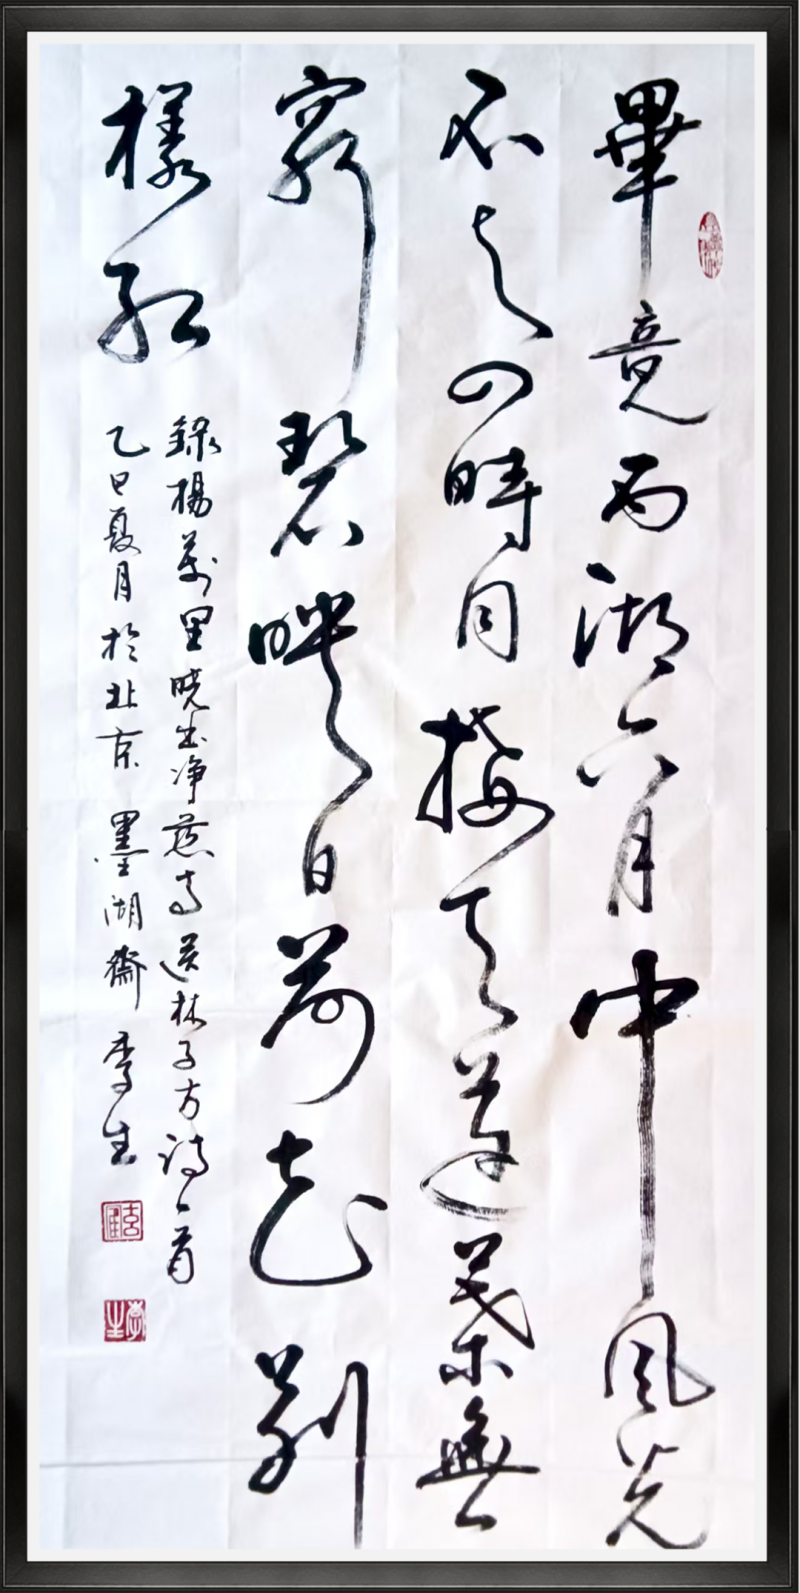 畢竟西湖六月中風光
不与四時同接天蓮葉無
窮碧映日荷花别
樣紅
錄楊萬里曉出净慈寺送林子方詩一首
乙巳夏月於北京墨湖齋李生
李生